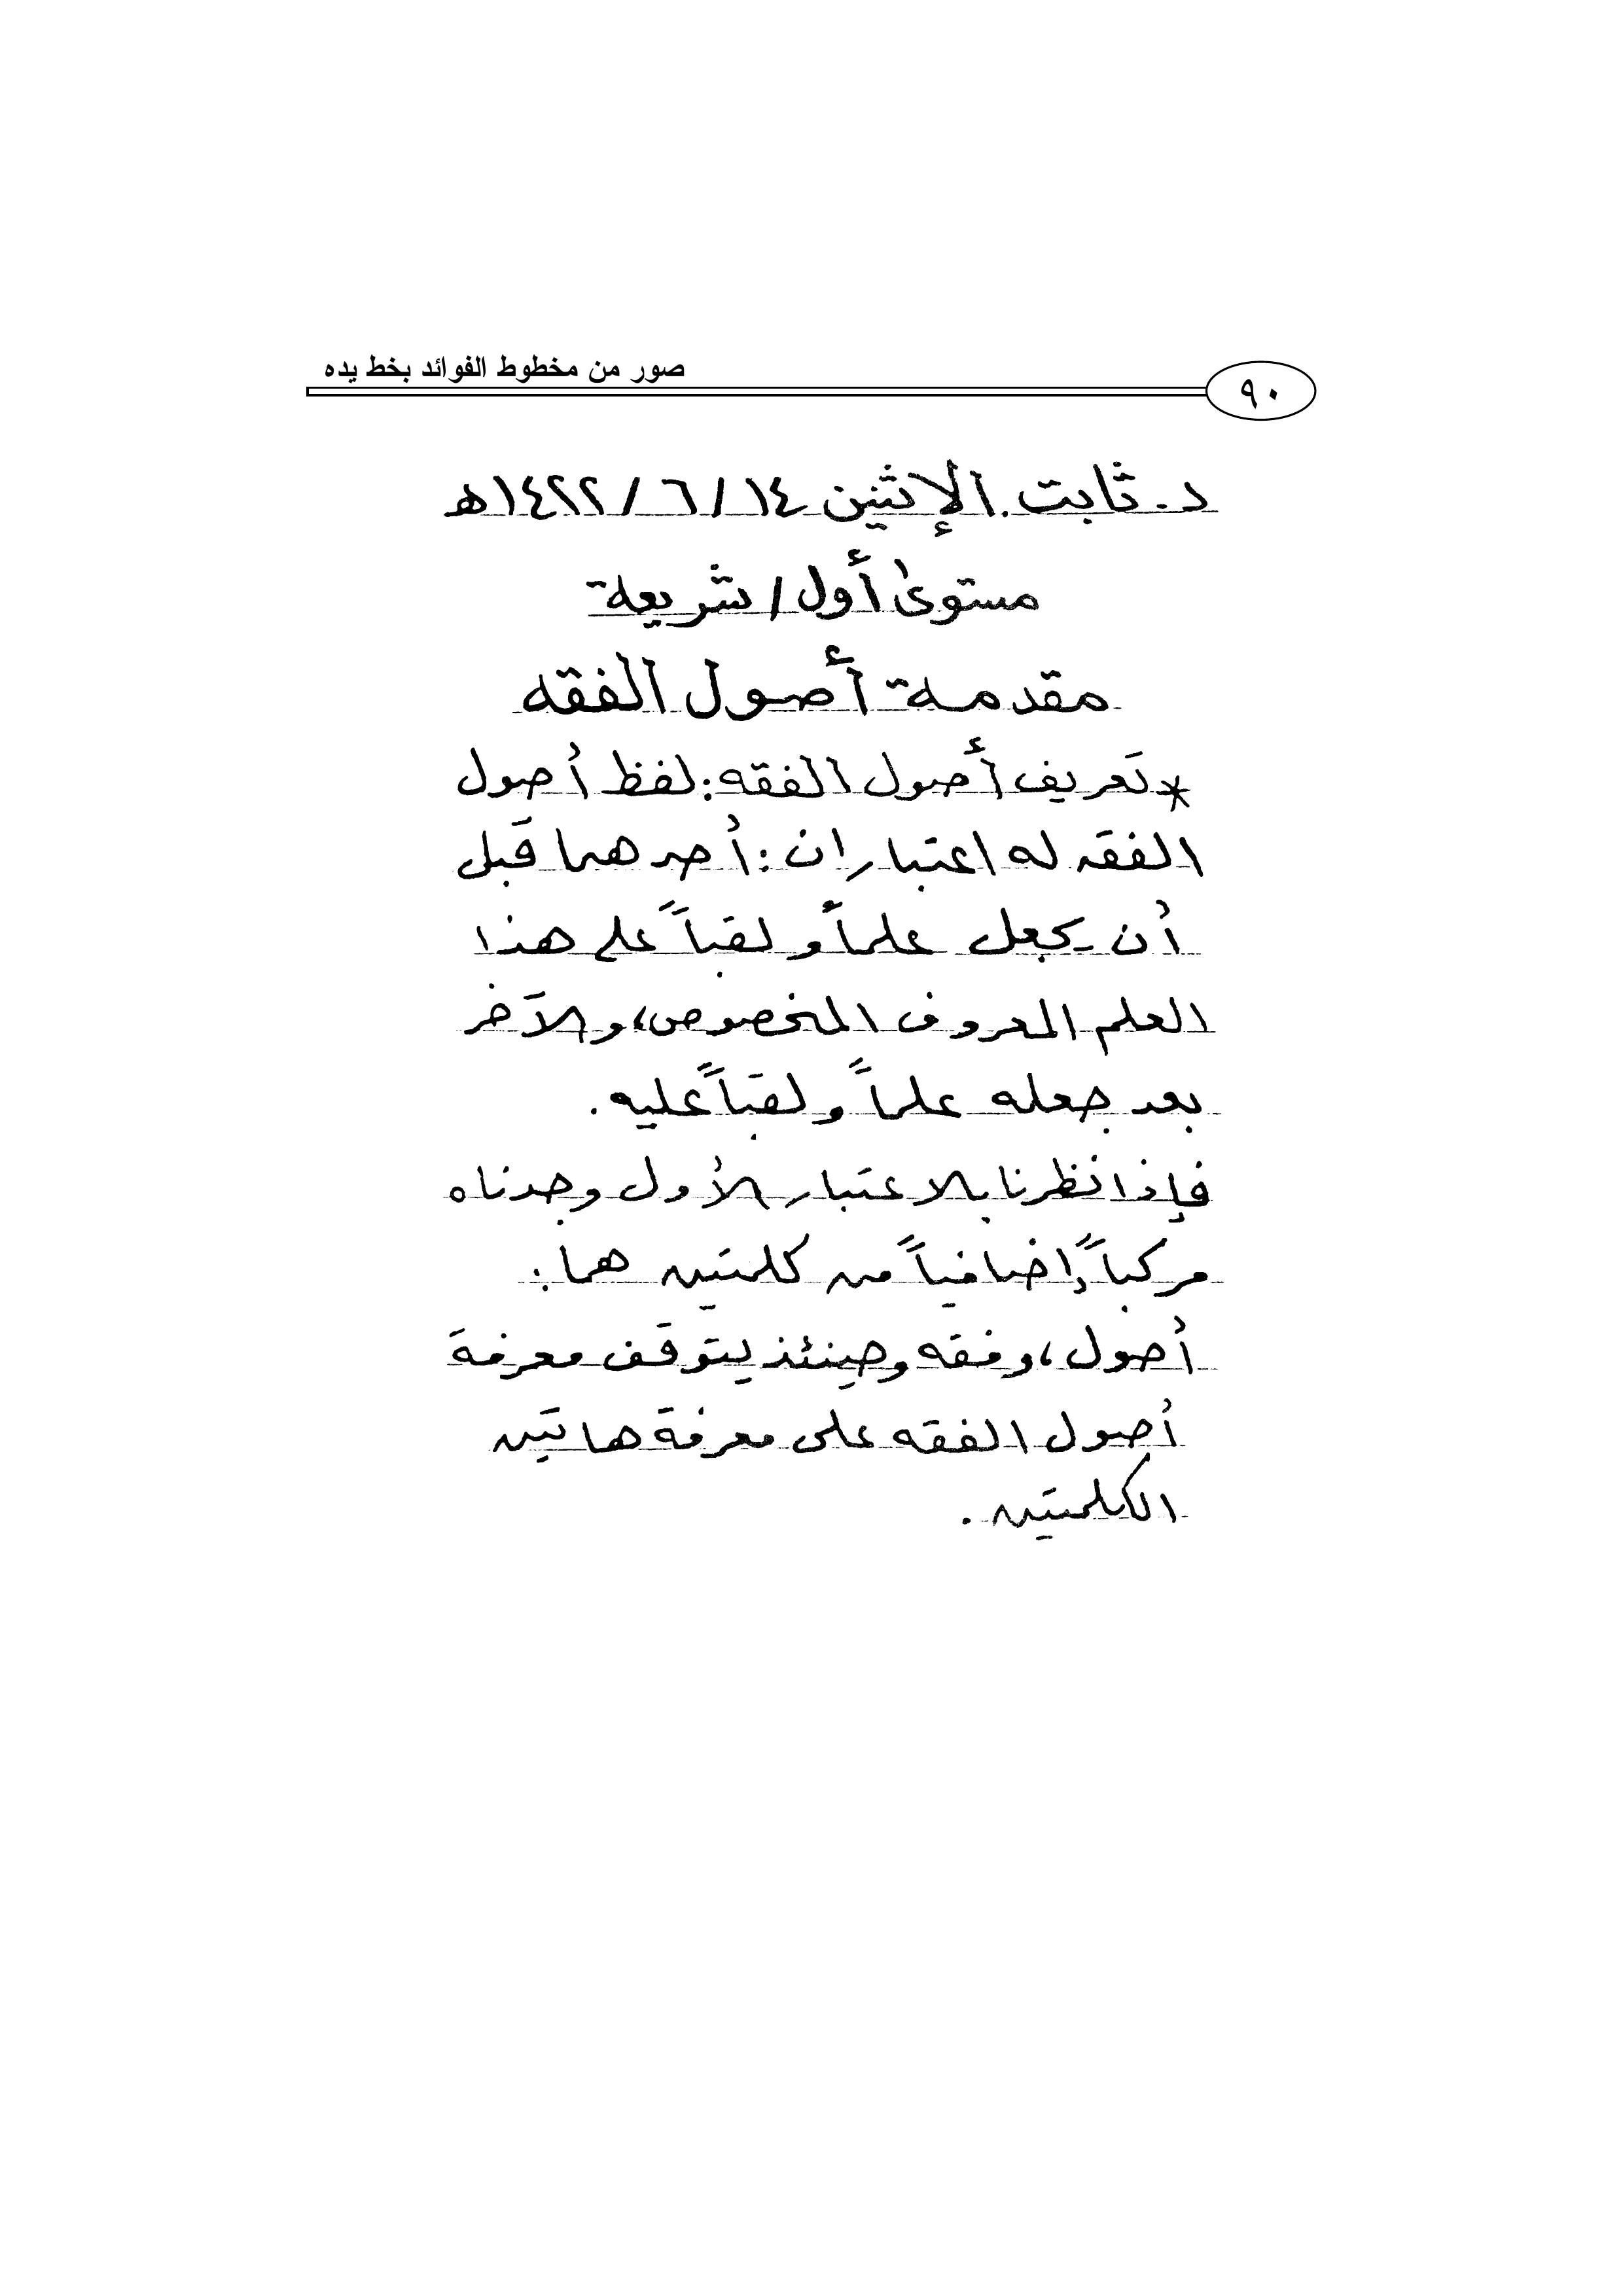 صور من مخطوط الفوائد بخط يده
٩٠
د. ثابت. الإثنين ١٤ / ٦ / ١٤٢٢هـ
مستوى أول / شريعة
مقدمة أصول الفقه
* تعريف أصول الفقه: لفظ أصول
الفقه له اعتباران: أحدهما قبل
أن يجعل علماً ولقباً على هذا
العلم المعروف المخصوص، والآخر
بعد جعله علماً ولقباً عليه.
فإذا نظرنا بالاعتبار الأول وجدناه
مركباً إضافياً من كلمتين هما:
أصول، وفقه وحينئذ يتوقف معرفة
أصول الفقه على معرفة هاتين
الكلمتين.